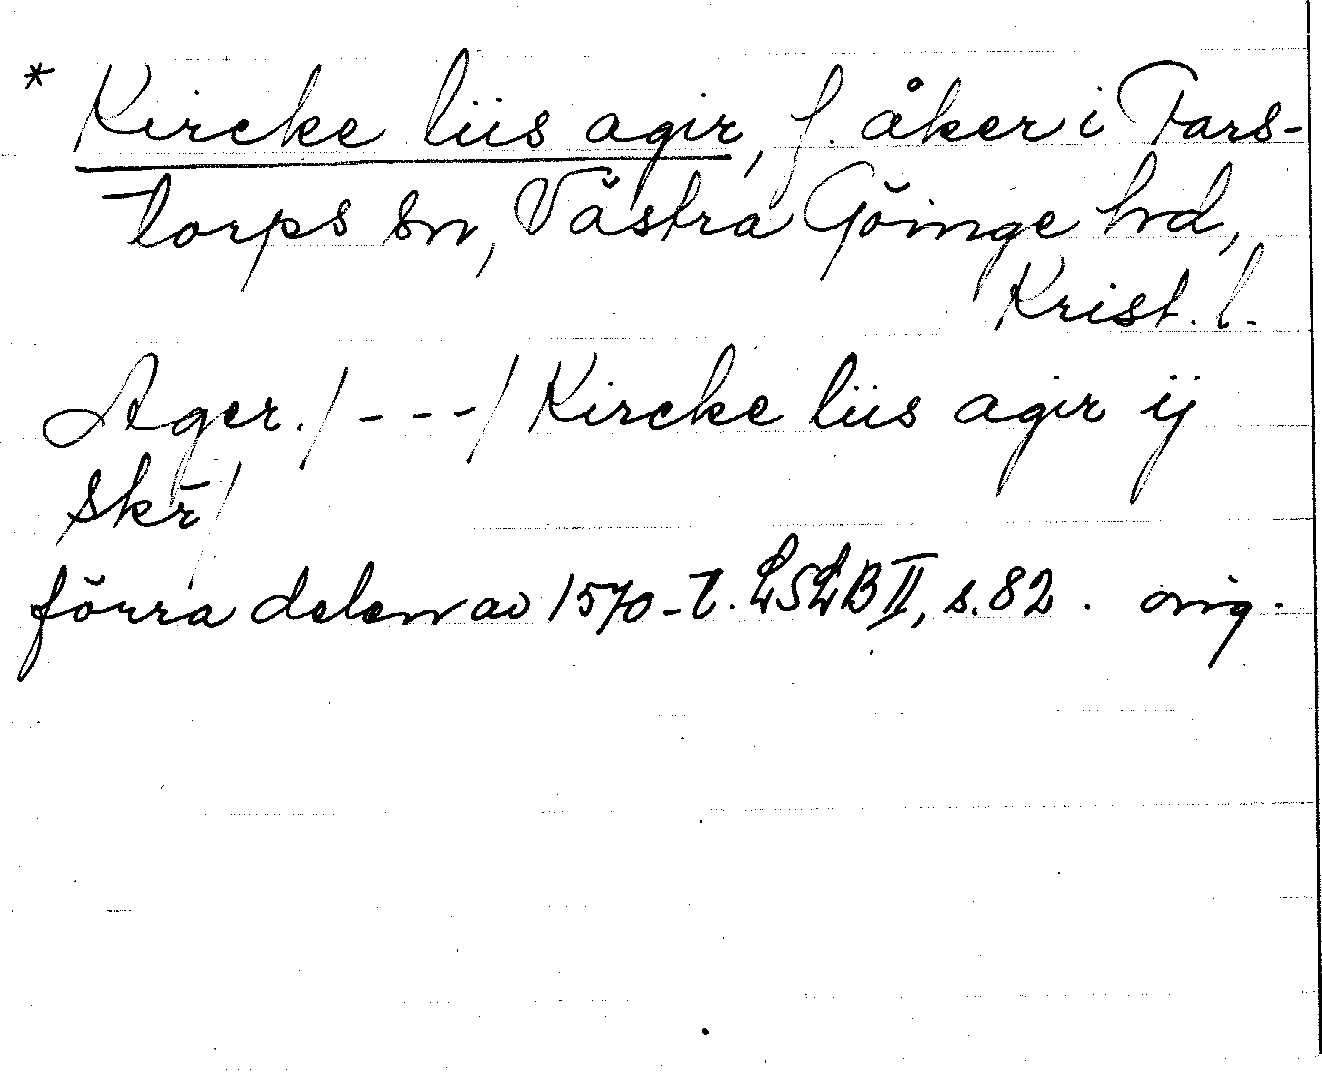 * Kircke liis agir, f. åker i Fars-
torps sn, Västra Göinge hd,
Krist. l.
Ager. / - - - / Kircke liis agir ij
skr̄ /
förra delen av 1570-t. LSLB II, s. 82. orig.